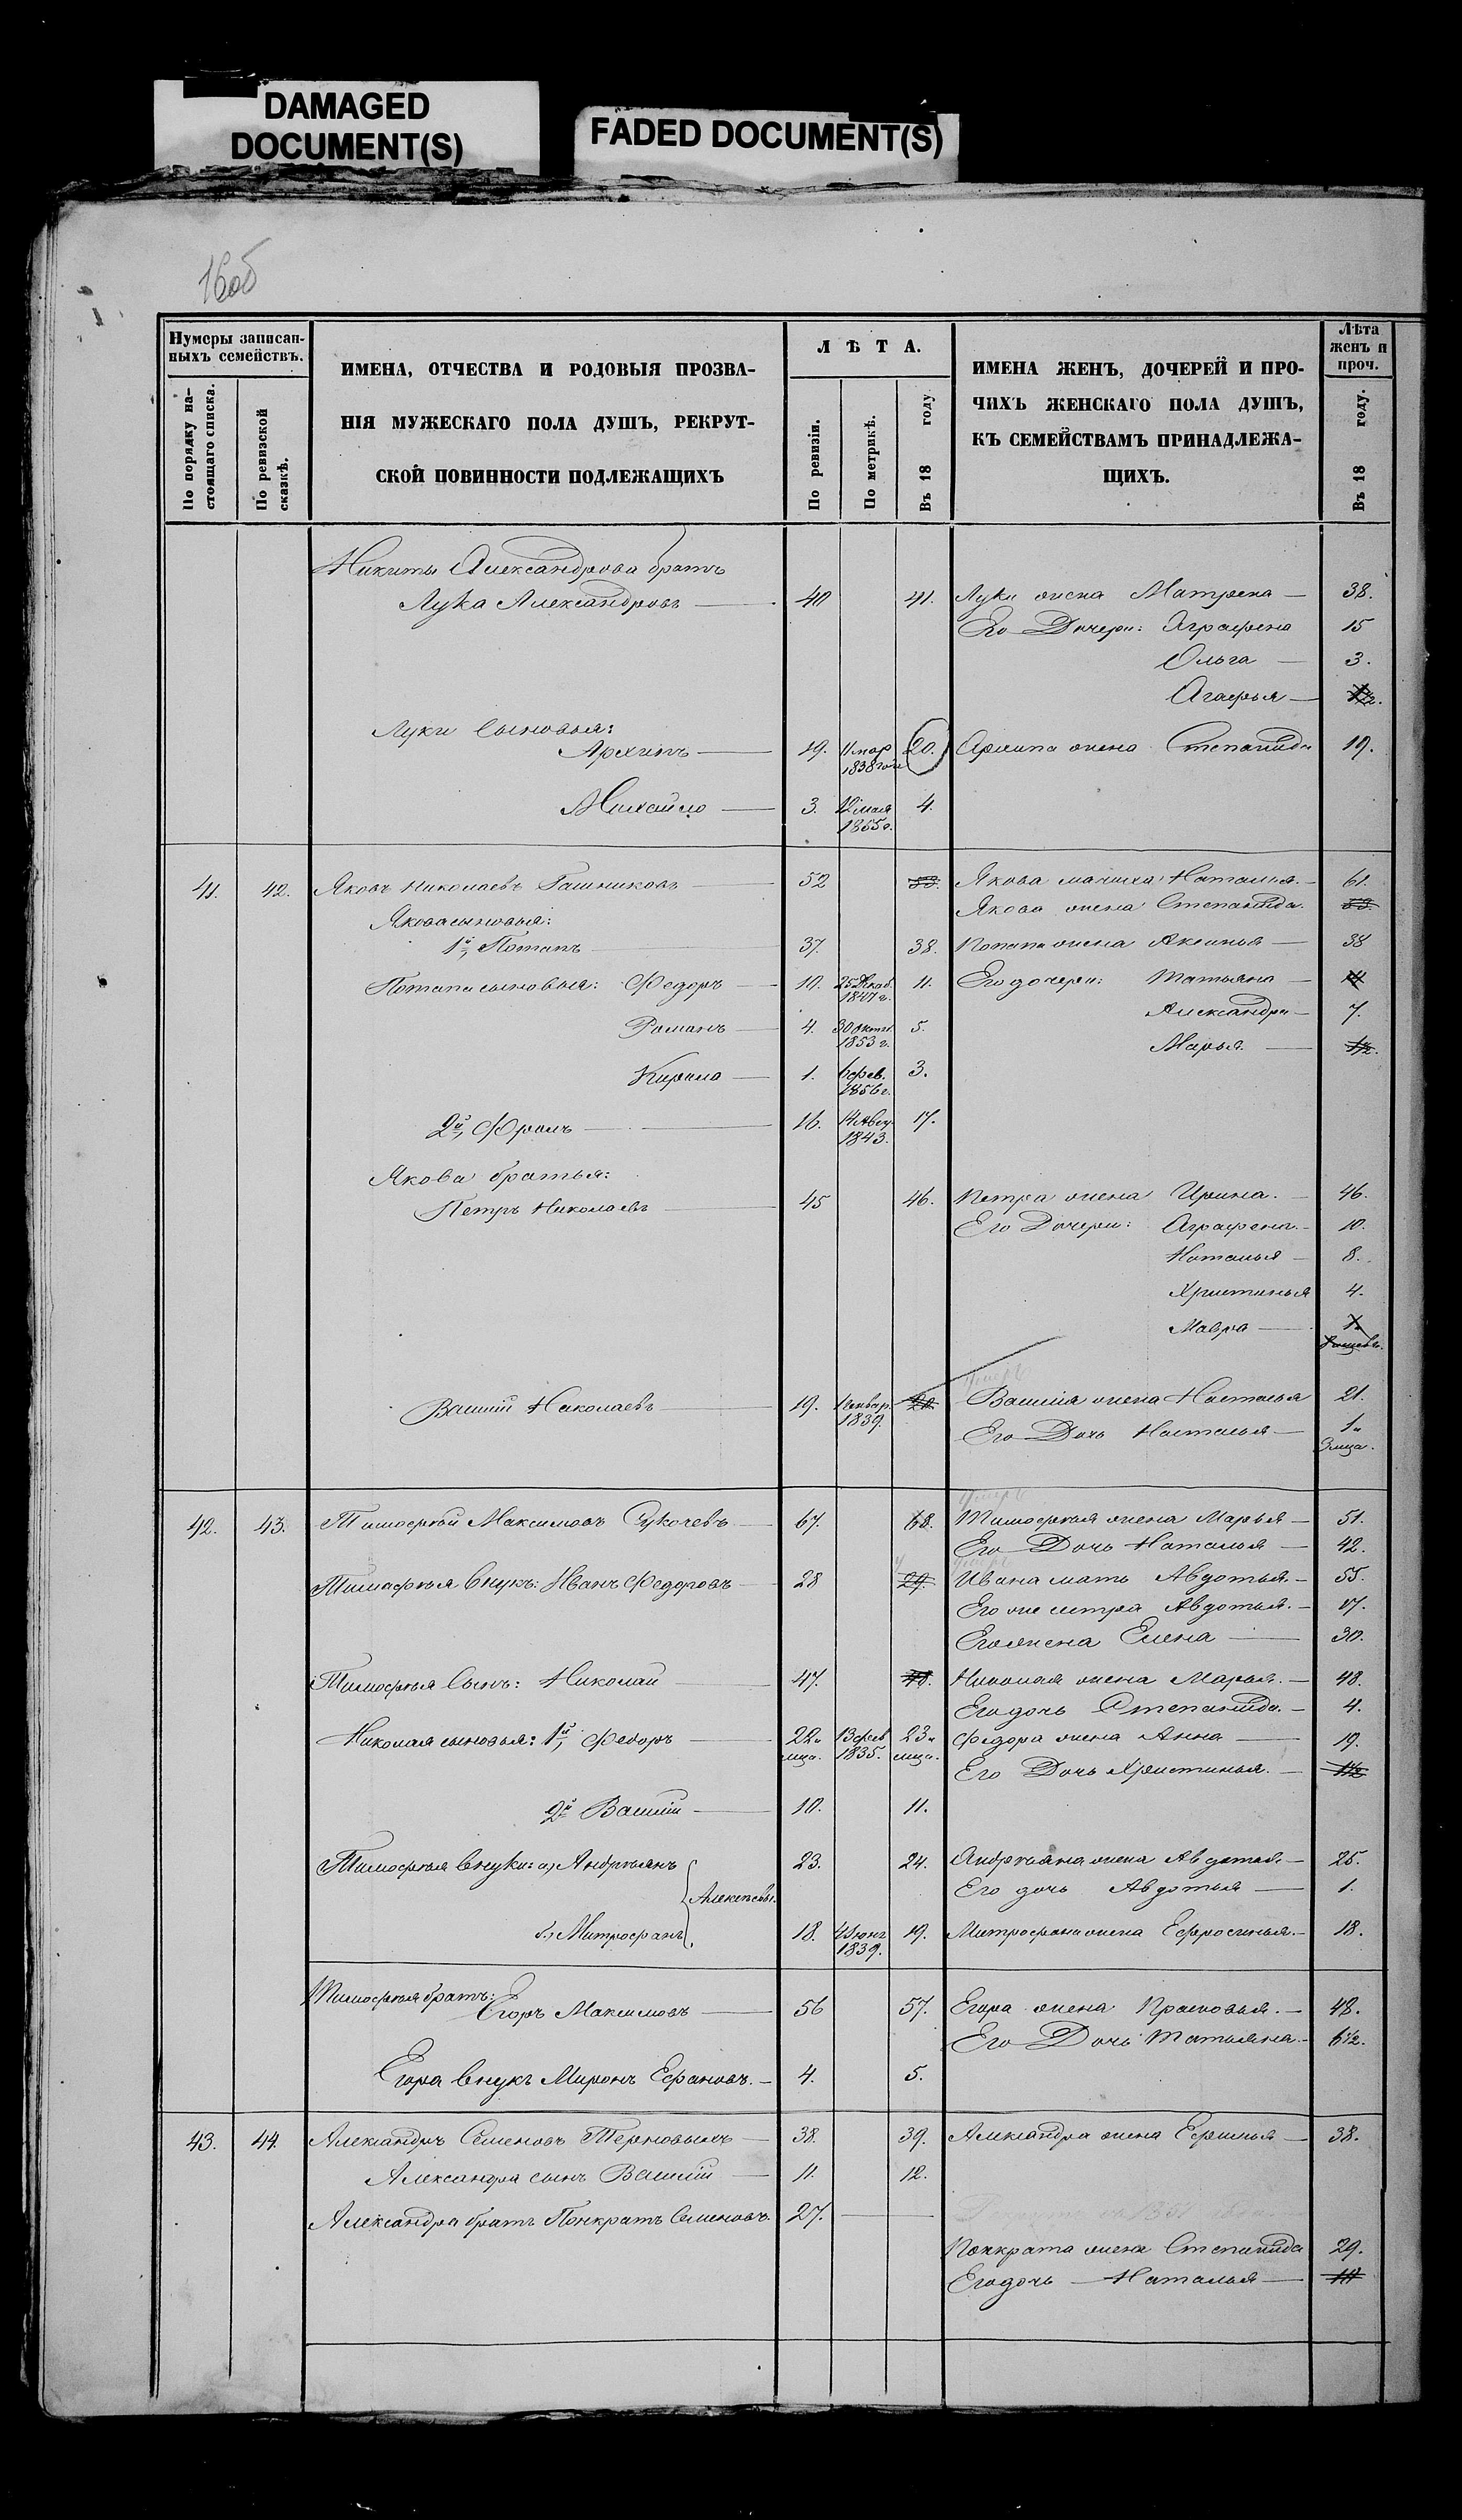 DAMAGED
DOCUMENT(S)
FADED DOCUMENT(S)
16об
Нумеры записан-
ныхъ семействъ.
По порядку на-
стоящаго списка.
По ревизской
сказкѣ.
ИМЕНА, ОТЧЕСТВА И РОДОВЫЯ ПРОЗВА-
НІЯ МУЖЕСКАГО ПОЛА ДУШЪ, РЕКРУТ-
СКОЙ ПОВИННОСТИ ПОДЛЕЖАЩИХЪ
ЛѢТА.
По ревизіи.
По метрикѣ.
Въ 18 году
ИМЕНА ЖЕНЪ, ДОЧЕРЕЙ И ПРО-
ЧИХЪ ЖЕНСКАГО ПОЛА ДУШЪ,
КЪ СЕМЕЙСТВАМЪ ПРИНАДЛЕЖА-
ЩИХЪ.
Лѣта
женъ и
проч.
Въ 18 году.
Никиты Александрова братъ
Лука Александровъ 40 41. Луки жена Матрена 38.
Его Дочери: Аграфена 15
Ольга 3.
Агафья
Луки Сыновья:
Архипъ 19. 11 мар 1838 года 20. Архипа жена Степанида 19.
Михайло 3. 12 мая 1855 г. 4.
41. 42. Яковъ Николаевъ Гашниковъ 52 53. Якова мачиха Наталья 61.
Якова сыновья: Якова жена Степанида. 53.
1й, Потапъ 37. 38. Потапа жена Аксинья 38
Потапа сыновья: Федоръ 10. 25 Декаб. 1847 г. 11. Его дочери: Татьяна
Александра 7.
Романъ 4. 30 октя. 1853 г. 5.
Марья 1/2.
Кирила 1. 6 фев. 1856 г. 3.
2й, Фролъ 16. 14 Авгу. 1843. 17.
Якова братья:
Петръ Николаевъ 45 46. Петра жена Ирина. 46.
Его Дочери: Аграфена. 10.
Наталья 8.
Христинья 4.
Мавра
Василій Николаевъ 19. 1 Январ. 1839. 20. Василія жена Наталья 21.
Его Дочь Наталья 1 и
3 мца.
42. 43. Тимофѣй Максимовъ Сукочевъ 67. 68. Тимофѣя жена Марья 51.
Его Дочь Наталья 42.
Тимофѣя внукъ: Иванъ Федоровъ 28 29. Ивана мать Авдотья. 55.
Его же сестра Авдотья. 17.
Его жена Елена 30.
Тимофѣя Сынъ: Николай 47. 48. Николая жена Марья. 48.
Его дочь Степанида. 4.
Николая сыновья: 1й, Федоръ 22 и мца. 13 фев 1835. 23 и мца. Федора жена Анна 19.
Его Дочь Христинья. 1 1/2
2й Василій 10. 11.
Тимофѣя внуки: а, Андрѣянъ 23. 24. Андрѣяна жена Авдотья 25.
Алексѣевы. Его дочь Авдотья 1.
б, Митрофанъ 18. 4 Июня 1839. 19. Митрофана жена Ефросинья. 18.
Тимофѣя братъ:
Егоръ Максимовъ 56 57. Егора жена Прасковья. 48.
Его Дочь Татьяна. 6 1/2.
Егора внукъ Миронъ Ефановъ. 4. 5.
43. 44. Александръ Семеновъ Терновыхъ 38. 39. Александра жена Ефимья 38.
Александра сынъ Василій 11. 12.
Александра братъ Понкратъ Семеновъ. 27.
Понкрата жена Степанида 29.
Его дочь Наталья 10